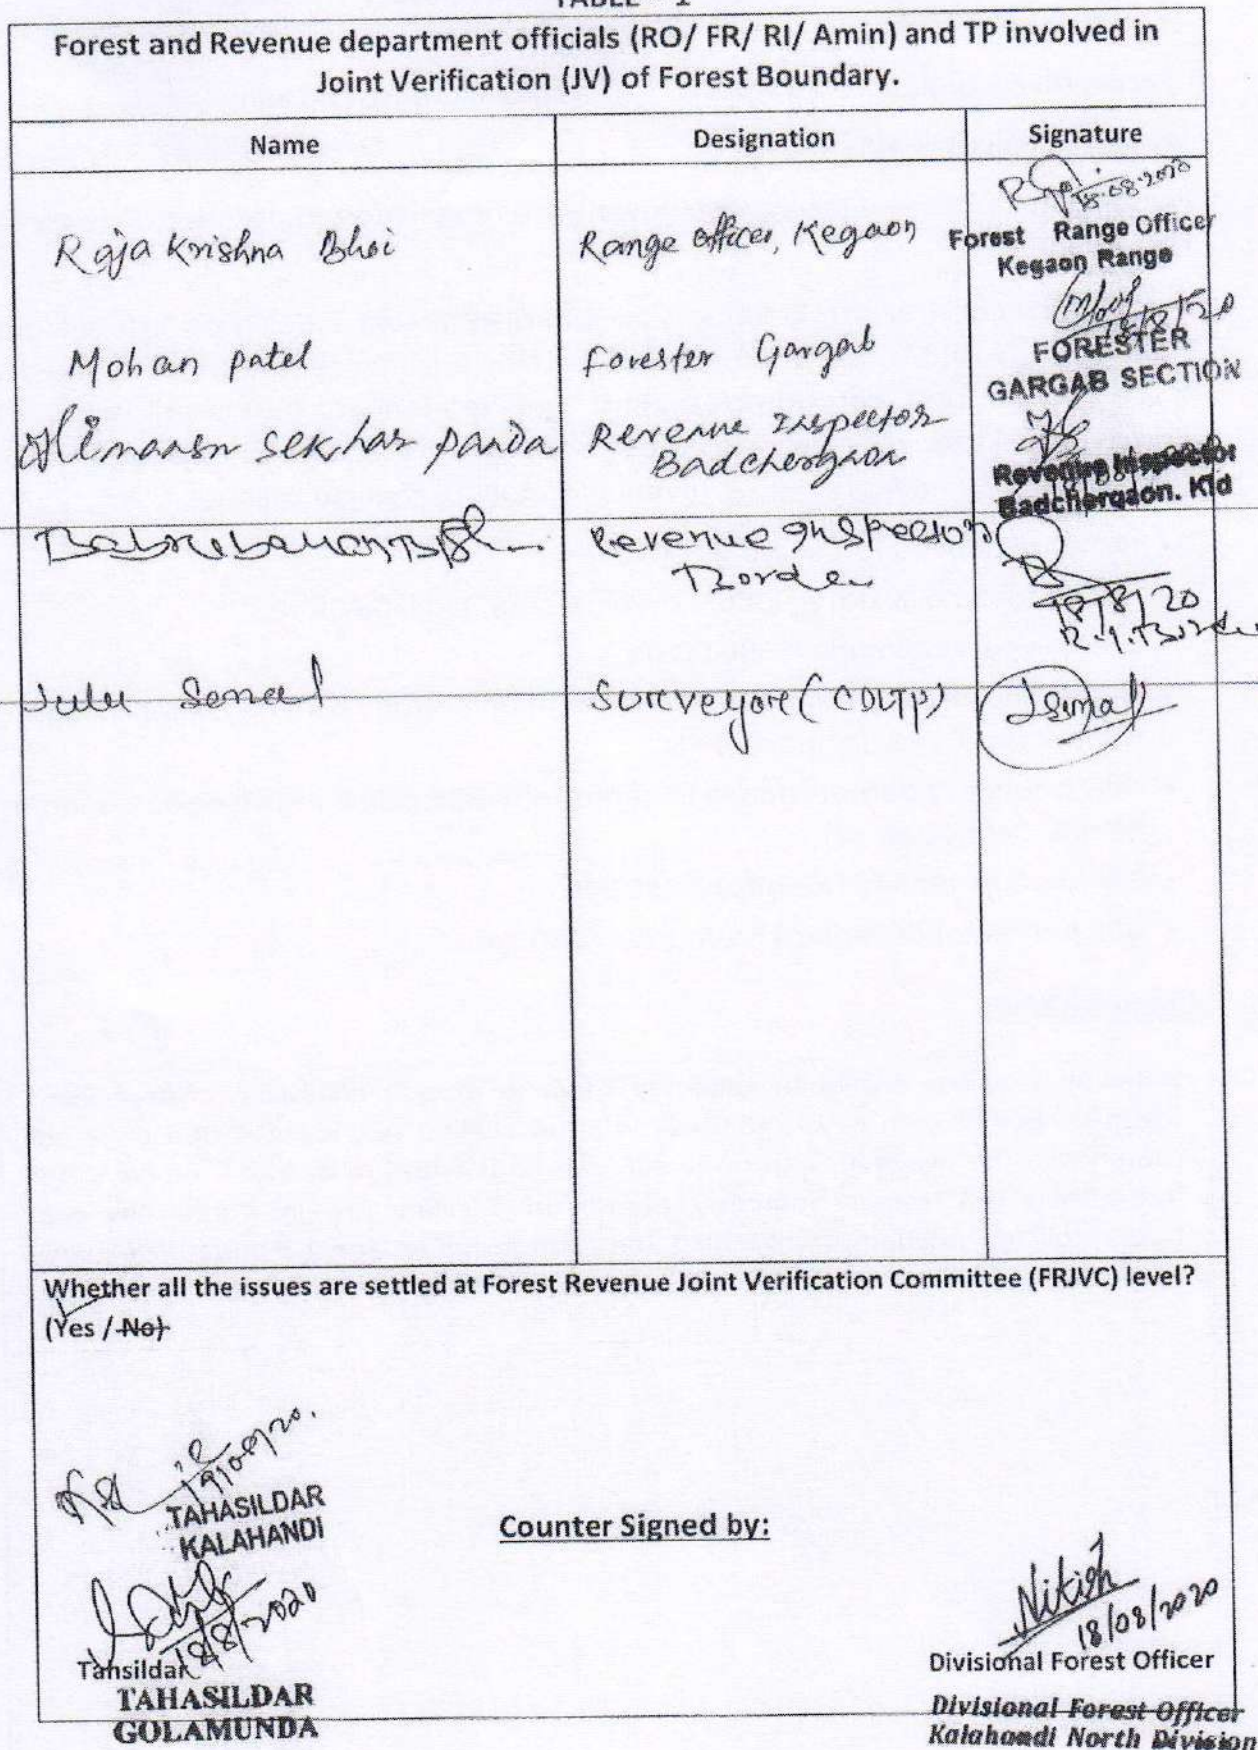 TABLE - 1
Forest and Revenue department officials (RO/ FR/ RI/ Amin) and TP involved in
Joint Verification (JV) of Forest Boundary.
Name Designation Signature
Raja Krishna Bhoi Range Officer, Kegaon
18.08.2020
Forest Range Officer
Kegaon Range
Mohan patel Forester Gargab
18/8/20
FORESTER
GARGAB SECTION
sekhar panda Revenue Inspector
Badchergaon
Revenue Inspector
Badchergaon. Kld
Revenue Inspector
Borda
18/8/20
R.I. Borda
Julu Semal Surveyore (COLTP) JSemal
Whether all the issues are settled at Forest Revenue Joint Verification Committee (FRJVC) level?
(Yes / No)
19/08/20.
TAHASILDAR
KALAHANDI
Counter Signed by:
18/8/2020
Nitish
18/08/2020
Tahsildar
Divisional Forest Officer
TAHASILDAR
GOLAMUNDA
Divisional Forest Officer
Kalahandi North Division